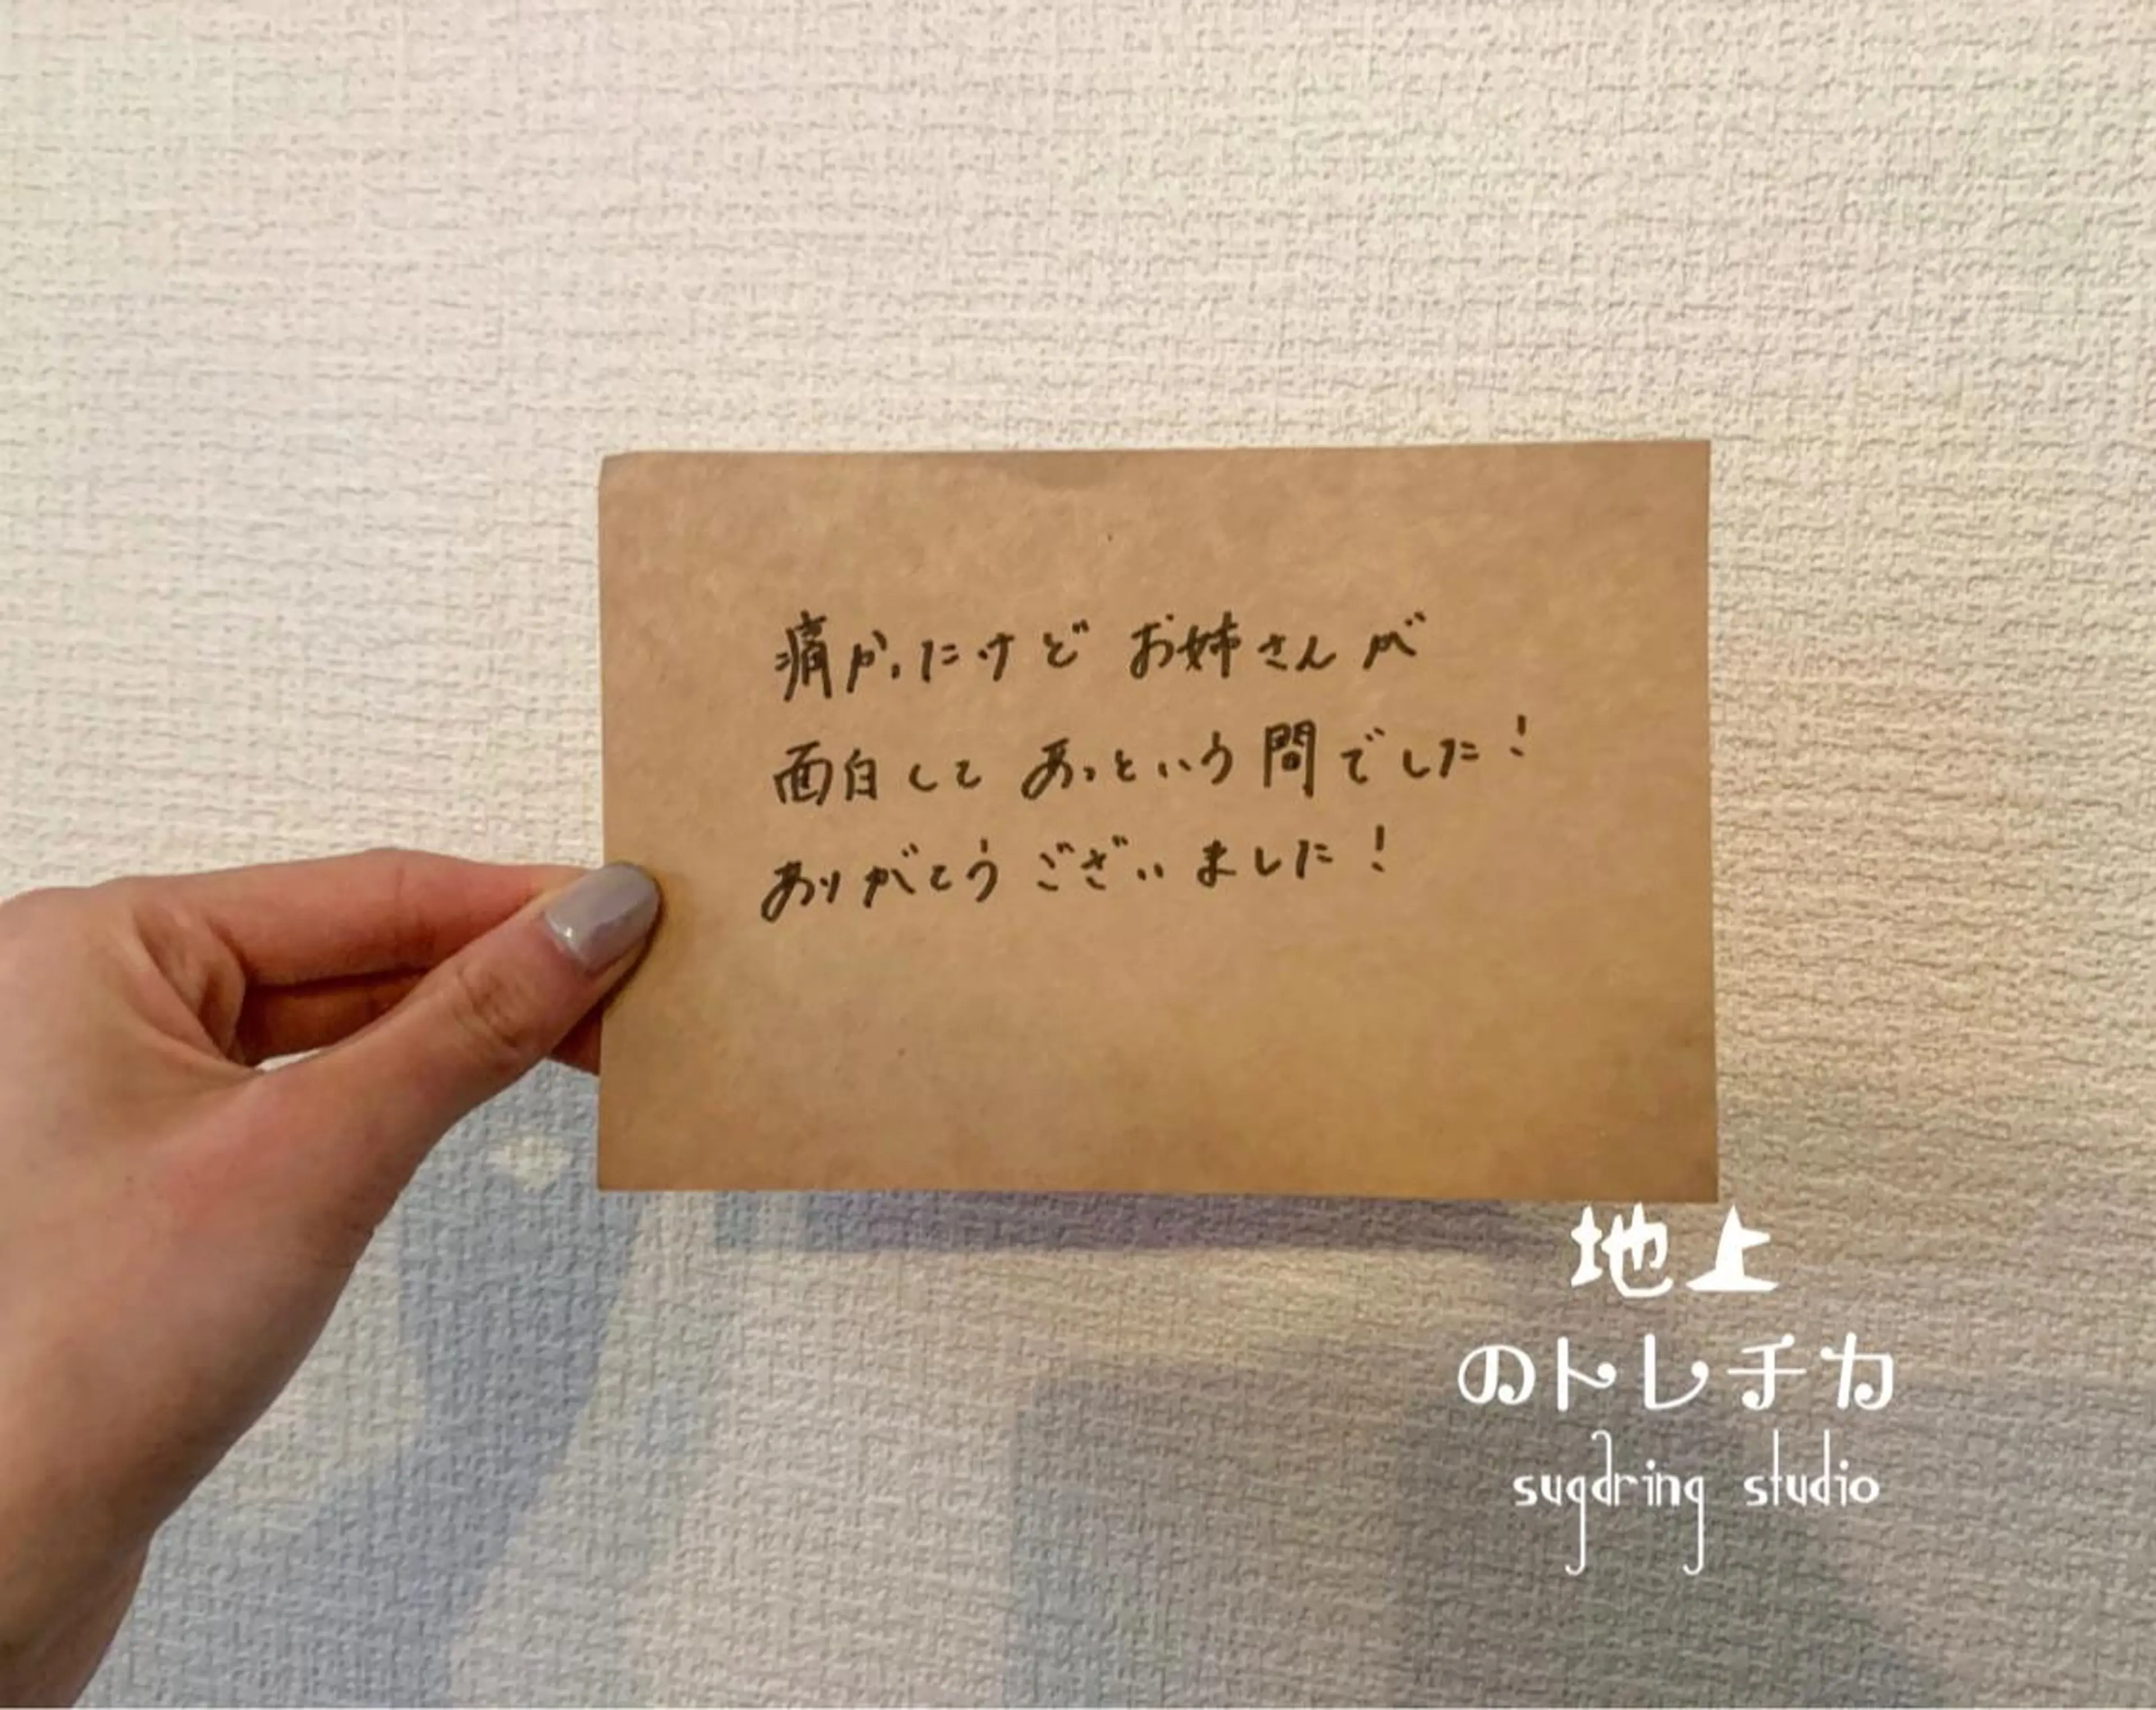 痛かったけど お姉さんが
面白して あっという間でした!
ありがとうございました!
地上
のトレチカ
sugdring studio